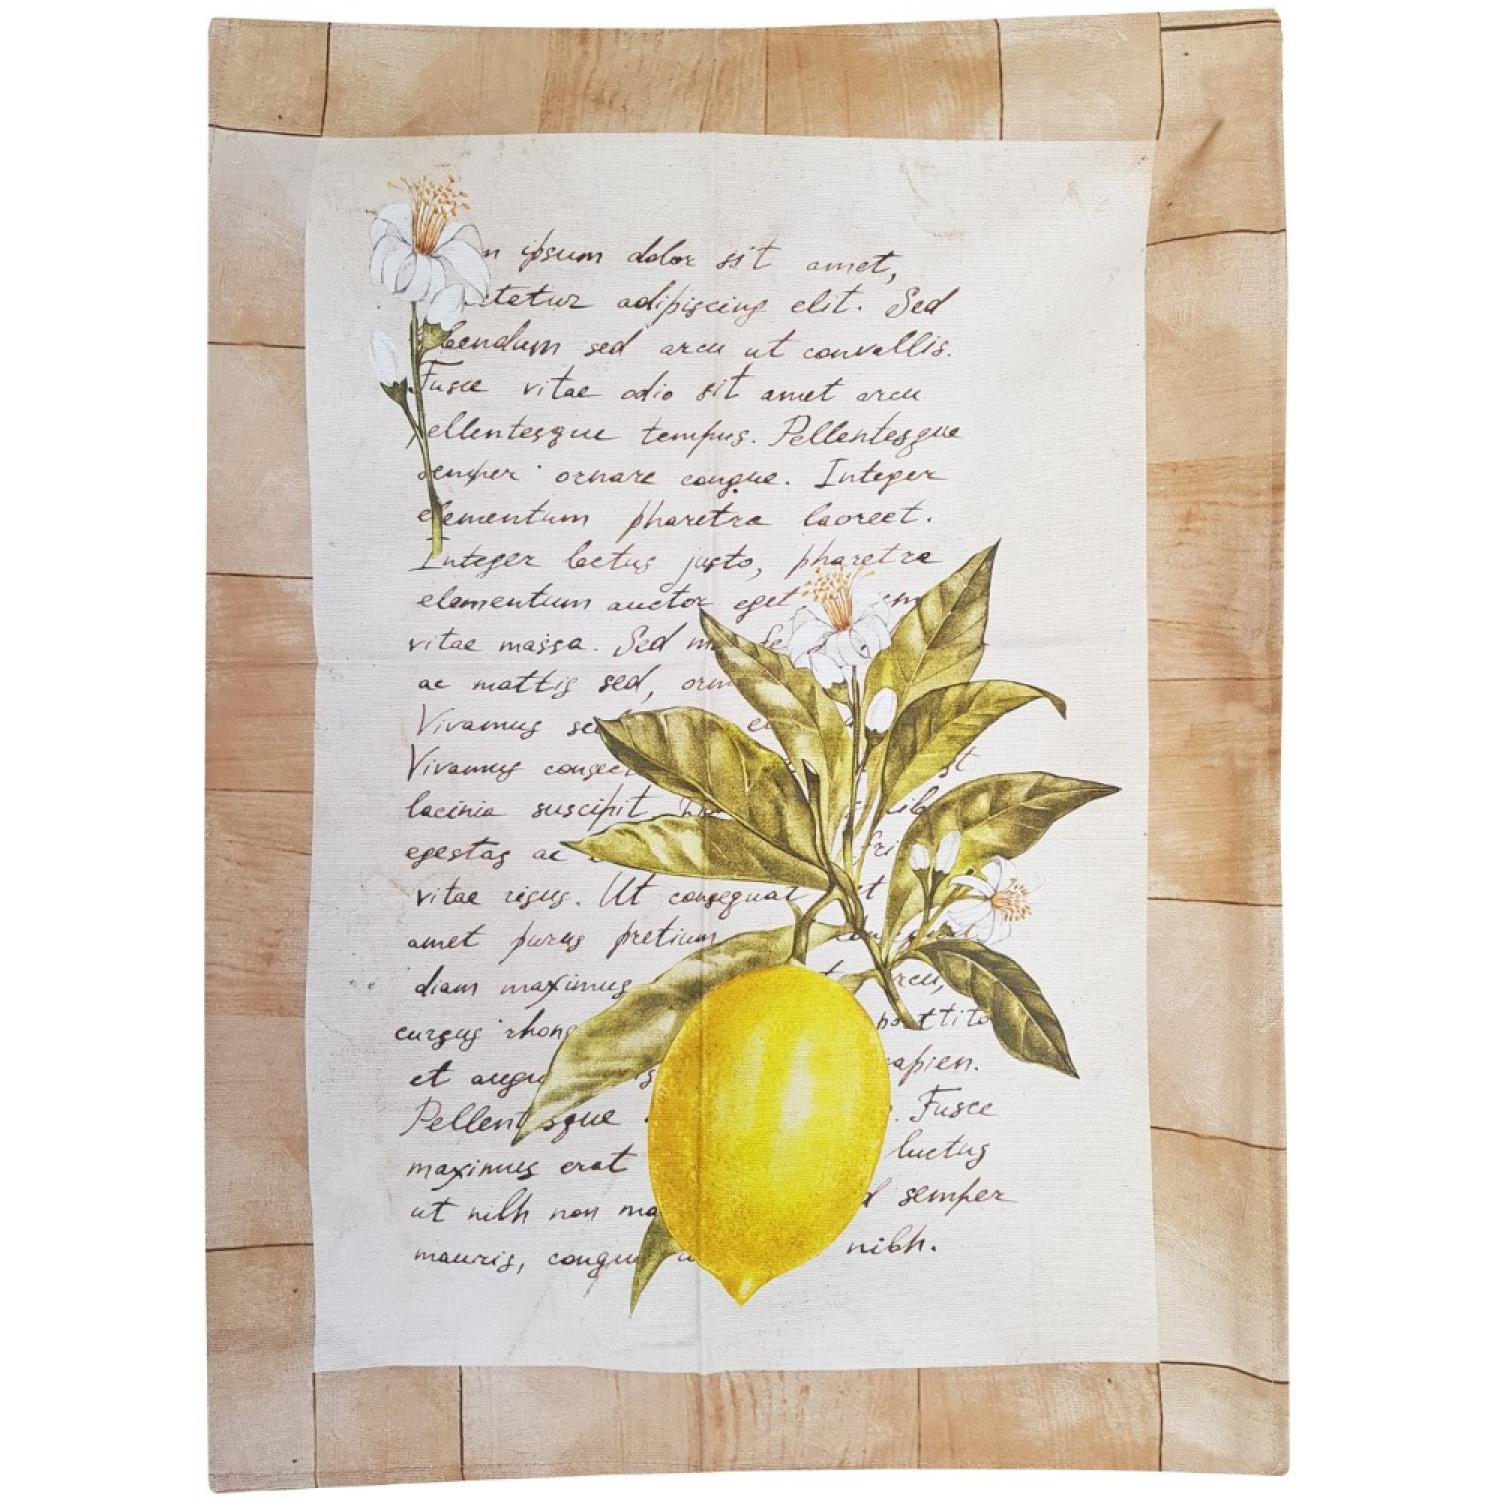 ipsum dolor sit amet,
ctetur adipiscing elit. Sed
bendum sed arcu ut convallis.
Fusce vitae odio sit amet arcu
ellentesque tempus. Pellentesque
semper ornare congue. Integer
elementum pharetra laoreet.
Integer lectus justo, pharetra
elementum auctor eget em
vitae massa. Sed
ac mattis sed,
Vivamus
Vivamus consec
lacinia suscipit.
egestas ac fri
vitae risus. Ut consequat t
amet purus pretium
diam maximus rcu,
cursus rhonc portito
et augu apien.
Pellentesque . Fusce
maximus erat luctus
ut nibh non ma d semper
mauris, congue nibh.